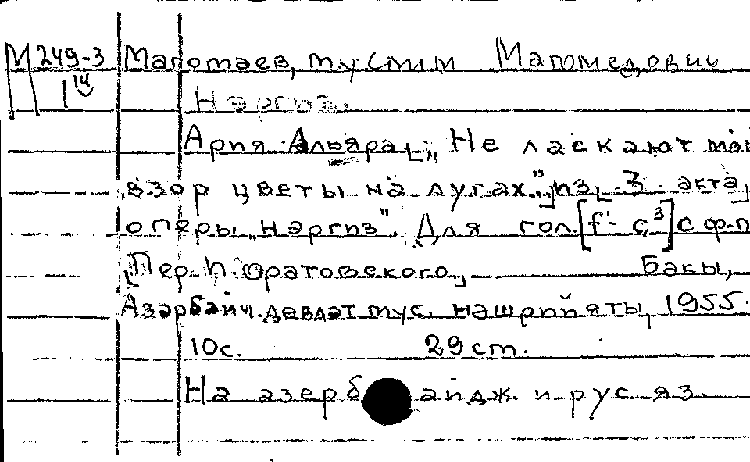 М 249-3 Магомаев, Муслим Магомедович
1 14
Наргиз.
Ария Альяра „Не ласкают мой
взор цветы на лугах", из 3 акта
оперы „Наргиз". Для гол. [f'- c³] с ф-п
[Пер. П. Оратовского]
Бакы,
Азәрбайҹ. давлат мус. нашрийяты, 1955.
10с. 29 cm.
На азерб айдж. и рус яз.